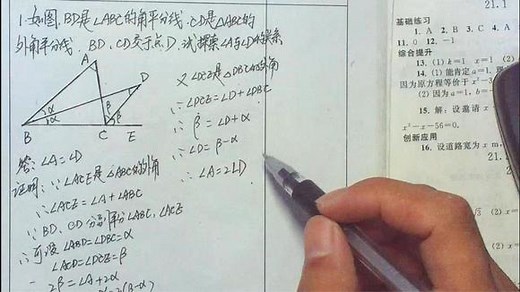 1.如图,BD是∠ABC的角平分线,CD是△ABC的
外角平分线, BD、CD交于点D,试探索∠A与∠D的关系
A
D
B
C
E
α
α
β
β
答:∠A=∠D
证明:∵∠ACE是△ABC的外角
∴∠ACE=∠A+∠ABC
∵BD、CD分别平分∠ABC,∠ACE
∴可设∠ABD=∠DBC=α
∠ACD=∠DCE=β
2β=∠A+2α
=2(β-α)
又∠DCE是△DBC的外角
∴∠DCE=∠D+∠DBC
∴β=∠D+α
∴∠D=β-α
∴∠A=2∠D
21.1
基础练习
1. A 2. B 3. C 4.
11. 0 12. -1
综合提升
13. (1) k=1 x=1 (2)
14. (1) 能肯定 a
因为原方程等价于 x²-3
(2) 因为 a=1, b=
15. 解: 设邀请 x
x²-x-56=0.
创新应用
16. 设道路宽为 x m
21.
√3 (2) x